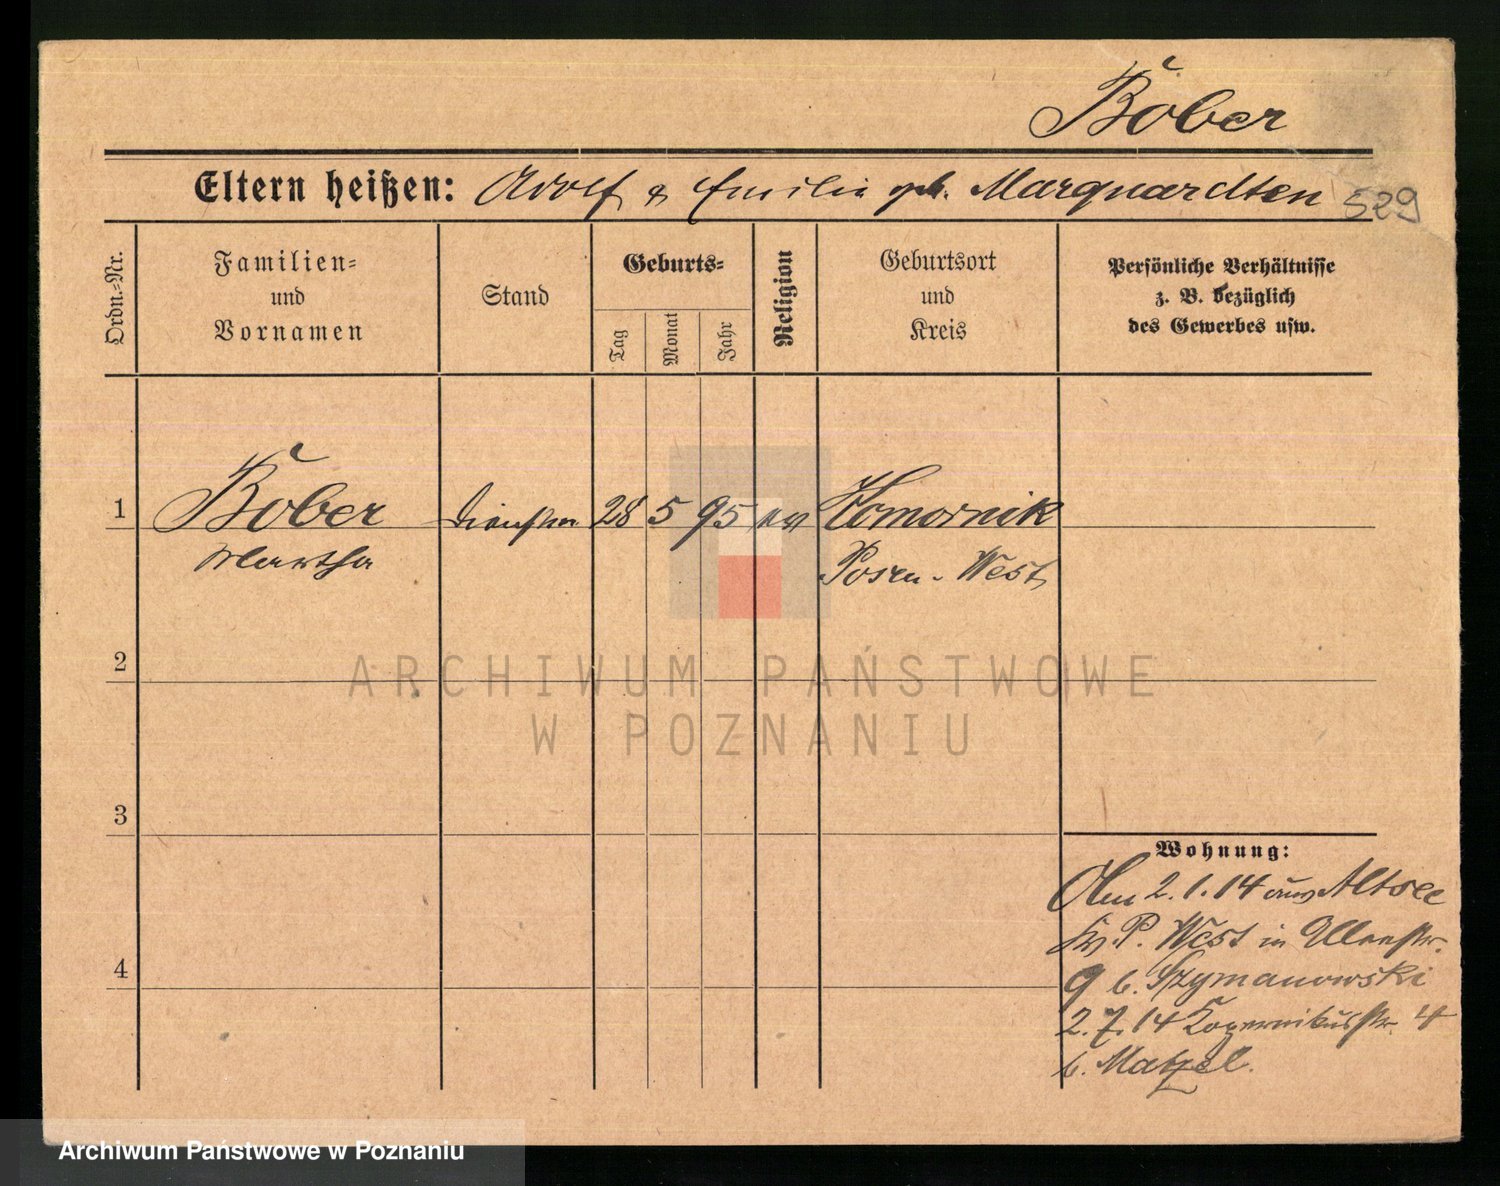 Bober
Eltern heißen: Adolf & Emilie geb. Marquardten
529
Ordn.-Nr.
Familien-
und
Vornamen
Stand
Geburts-
Tag
Monat
Jahr
Religion
Geburtsort
und
Kreis
Persönliche Verhältnisse
z. B. bezüglich
des Gewerbes usw.
1 Bober 28 5 95 ev Komornik
Martha Posen-West
2
ARCHIWUM PAŃSTWOWE
W POZNANIU
3
Wohnung:
2.1.14 aus Altsee
P. West in
9 b. Szymanowski
4
2.7.14 Kopernikusstr. 4
b. Matzel.
Archiwum Państwowe w Poznaniu